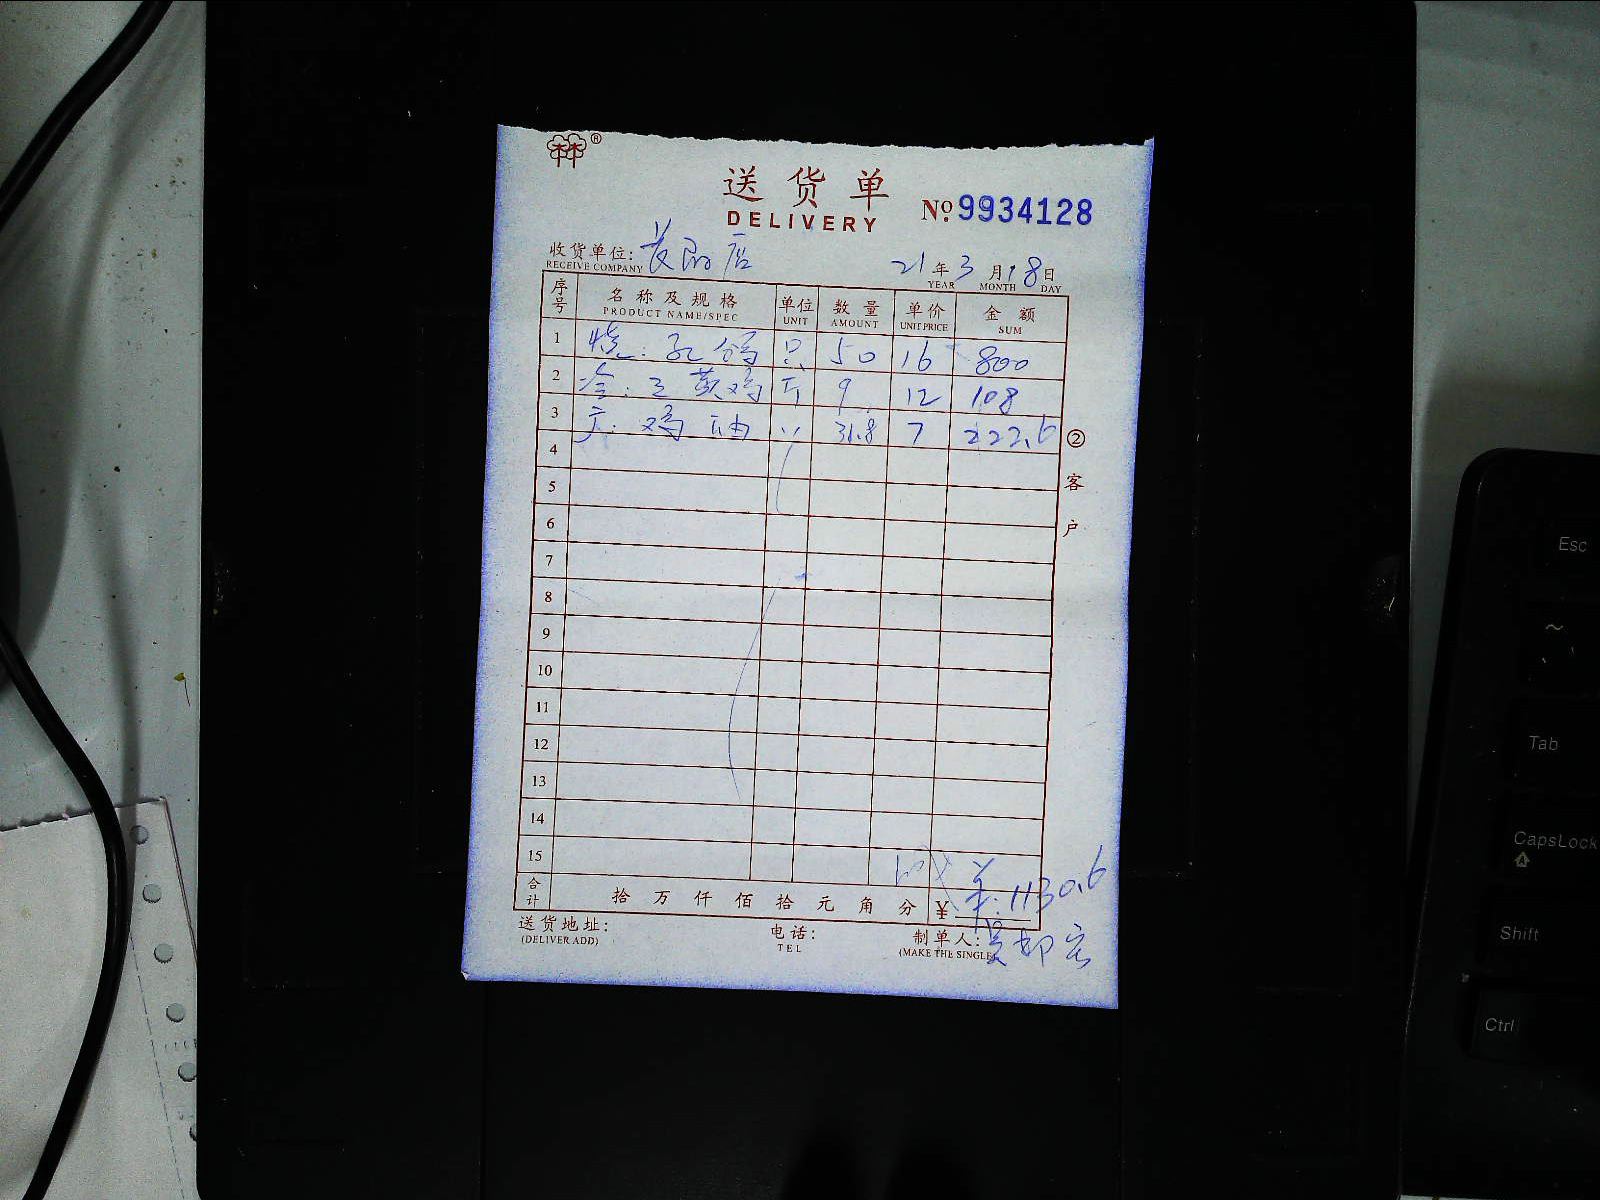 ®
送货单
DELIVERY
№ 9934128
收货单位: 店
RECEIVE COMPANY
21年3月18日
YEAR MONTH DAY
序号 名称及规格 单位 数量 单价 金额
PRODUCT NAME/SPEC UNIT AMOUNT UNIT PRICE SUM
1 烧: 乳鸽 只 50 16 800
2 冷: 三黄鸡 斤 9 12 108
3 鸡油 〃 31.8 7 222.6
4
5
6
7
8
9
10
11
12
13
14
15
② 客户
合计 拾 万 仟 佰 拾 元 角 分 ¥ 1130.6
送货地址: 电话: 制单人:
(DELIVER ADD) TEL (MAKE THE SINGLE
Esc
~
Tab
CapsLock
A
Shift
Ctrl